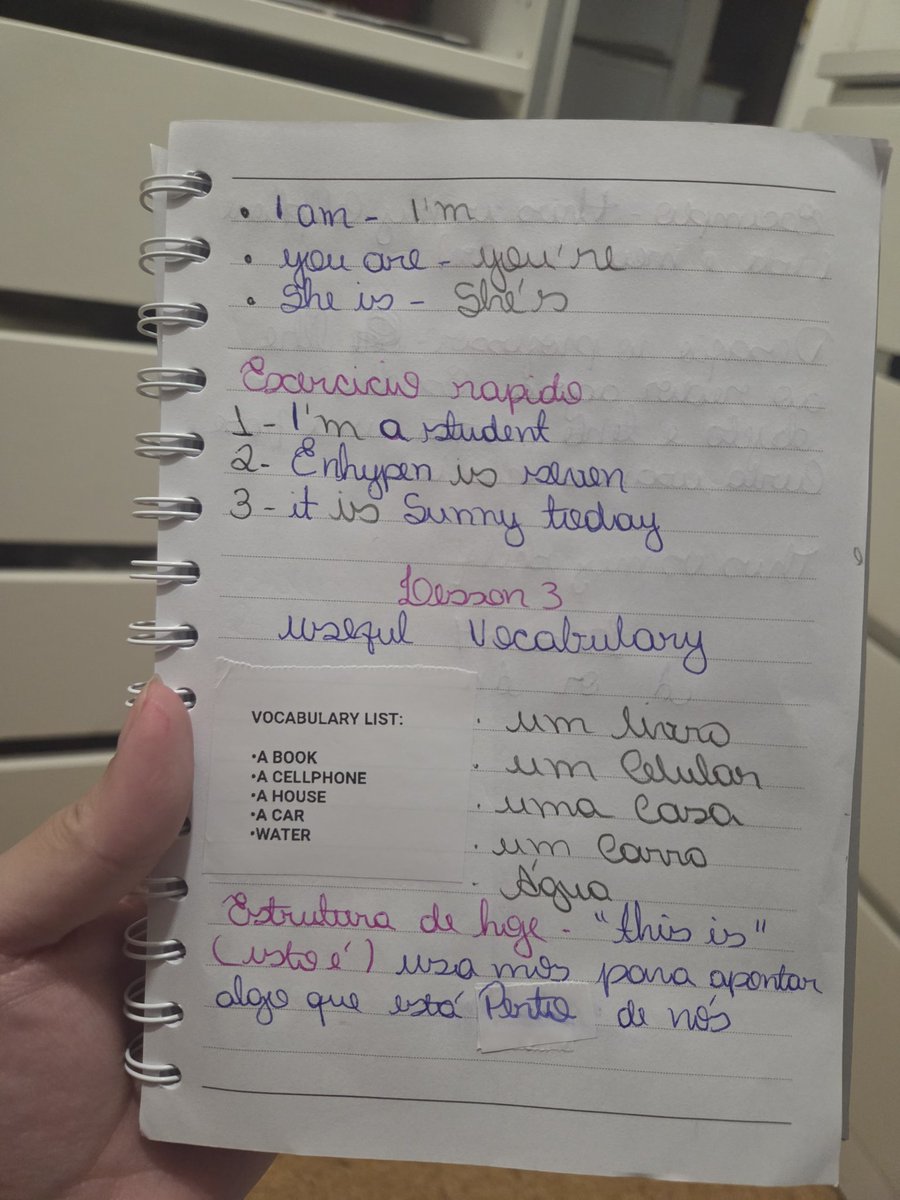 • I am - I'm
• you are - you're
• She is - She's
Exercicio rapido
1 - I'm a student
2 - Enhypen is seven
3 - it is Sunny today
Lesson 3
useful Vocabulary
VOCABULARY LIST:
•A BOOK
•A CELLPHONE
•A HOUSE
•A CAR
•WATER
· um livro
· um Celular
· uma Casa
· um Carro
· Água
Estrutura de hoje - "this is"
(isto é) usamos para apontar
algo que está Perto de nós